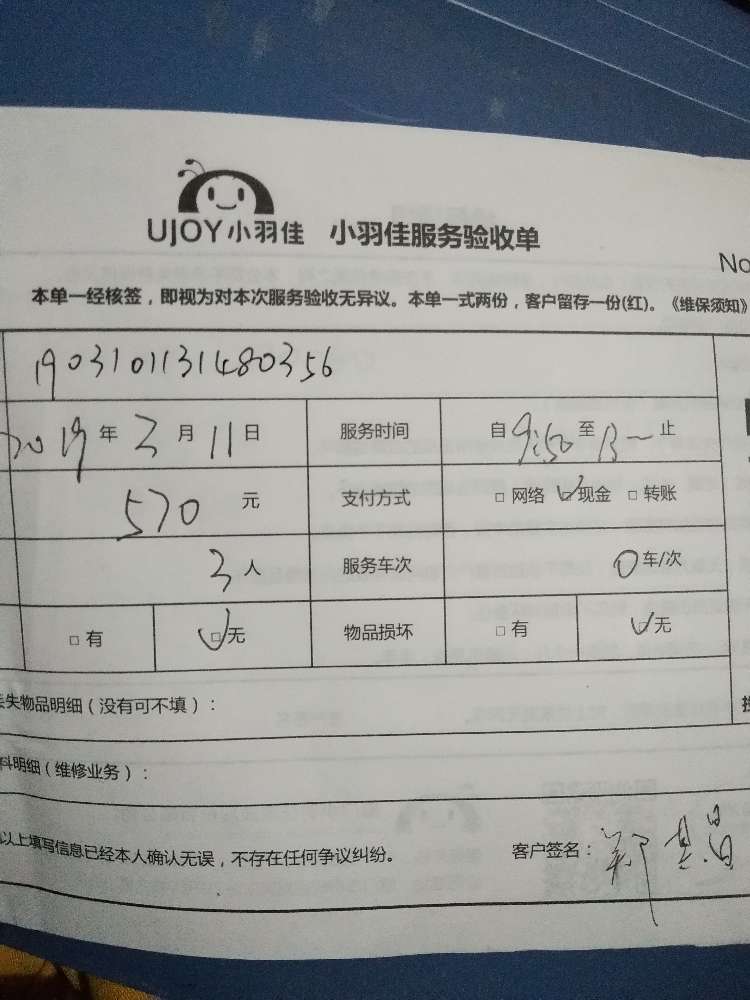 UJOY小羽佳 小羽佳服务验收单
No
本单一经核签，即视为对本次服务验收无异议。本单一式两份，客户留存一份(红)。《维保须知》
1903101131480356
2019年3月11日 服务时间 自9:50至13一止
570元 支付方式 □网络 ☑现金 □转账
3人 服务车次 0车/次
□有 ☑无 物品损坏 □有 ☑无
失物品明细（没有可不填）：
料明细（维修业务）：
以上填写信息已经本人确认无误，不存在任何争议纠纷。 客户签名：郑